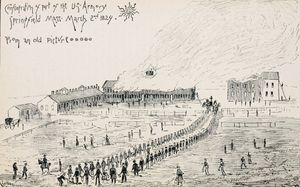 Conflagration of part of the U.S. Armory
Springfield Mass. March 2nd 1824.
From an old picture